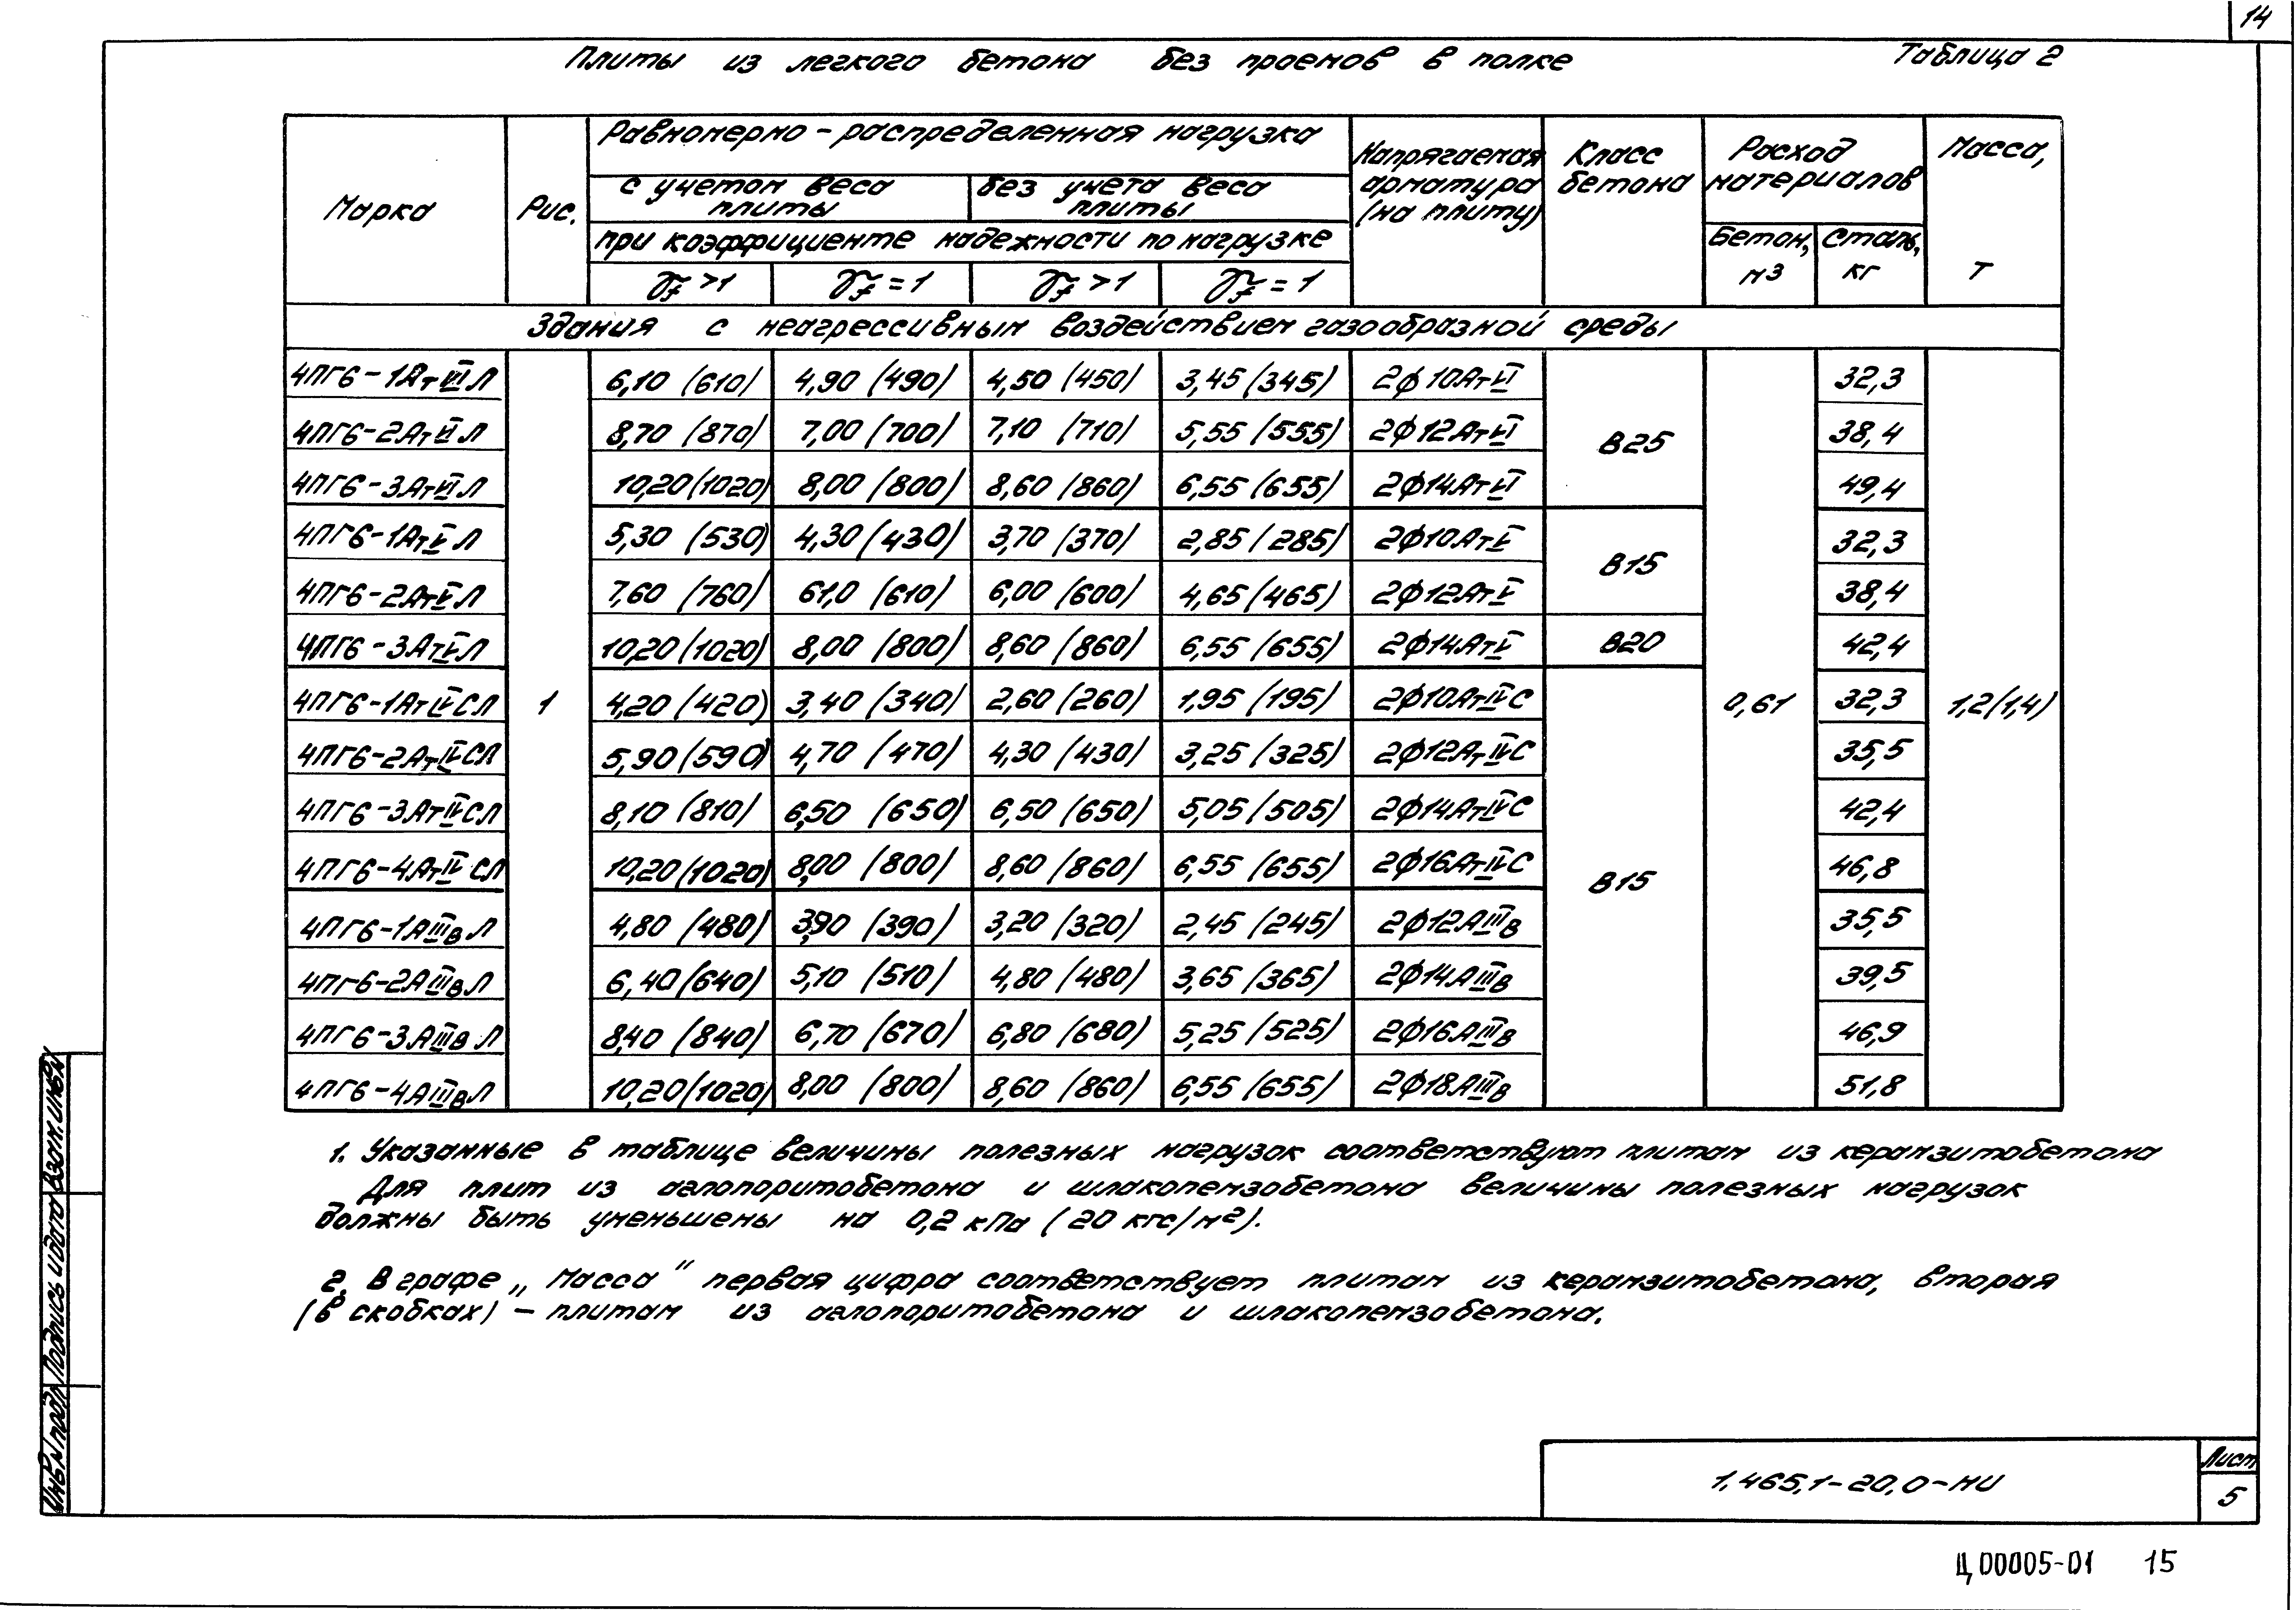 14
Плиты из легкого бетона без проемов в полке
Таблица 2
Марка
Рис.
Равномерно-распределенная нагрузка
с учетом веса плиты
без учета веса плиты
при коэффициенте надежности по нагрузке
γf >1
γf =1
γf >1
γf =1
Напрягаемая арматура (на плиту)
Класс бетона
Расход материалов
Бетон, м3
Сталь, кг
Масса, т
Здания с неагрессивным воздействием газообразной среды
4ПГ6-1АтVIЛ 6,10 (610) 4,90 (490) 4,50 (450) 3,45 (345) 2ф10АтVI 32,3
4ПГ6-2АтVIЛ 8,70 (870) 7,00 (700) 7,10 (710) 5,55 (555) 2ф12АтVI В25 38,4
4ПГ6-3АтVIЛ 10,20 (1020) 8,00 (800) 8,60 (860) 6,55 (655) 2ф14АтVI 49,4
4ПГ6-1АтVЛ 5,30 (530) 4,30 (430) 3,70 (370) 2,85 (285) 2ф10АтV В15 32,3
4ПГ6-2АтVЛ 7,60 (760) 61,0 (610) 6,00 (600) 4,65 (465) 2ф12АтV 38,4
4ПГ6-3АтVЛ 10,20 (1020) 8,00 (800) 8,60 (860) 6,55 (655) 2ф14АтV В20 42,4
4ПГ6-1АтIVСЛ 1 4,20 (420) 3,40 (340) 2,60 (260) 1,95 (195) 2ф10АтIVС 0,61 32,3 1,2(1,4)
4ПГ6-2АтIVСЛ 5,90 (590) 4,70 (470) 4,30 (430) 3,25 (325) 2ф12АтIVС 35,5
4ПГ6-3АтIVСЛ 8,10 (810) 6,50 (650) 6,50 (650) 5,05 (505) 2ф14АтIVС 42,4
4ПГ6-4АтIVСЛ 10,20 (1020) 8,00 (800) 8,60 (860) 6,55 (655) 2ф16АтIVС В15 46,8
4ПГ6-1АIIIвЛ 4,80 (480) 3,90 (390) 3,20 (320) 2,45 (245) 2ф12АIIIв 35,5
4ПГ6-2АIIIвЛ 6,40 (640) 5,10 (510) 4,80 (480) 3,65 (365) 2ф14АIIIв 39,5
4ПГ6-3АIIIвЛ 8,40 (840) 6,70 (670) 6,80 (680) 5,25 (525) 2ф16АIIIв 46,9
4ПГ6-4АIIIвЛ 10,20 (1020) 8,00 (800) 8,60 (860) 6,55 (655) 2ф18АIIIв 51,8
1. Указанные в таблице величины полезных нагрузок соответствуют плитам из керамзитобетона
Для плит из аглопоритобетона и шлакопемзобетона величины полезных нагрузок
должны быть уменьшены на 0,2 кПа (20 кгс/м2).
2. В графе „Масса" первая цифра соответствует плитам из керамзитобетона, вторая
(в скобках) – плитам из аглопоритобетона и шлакопемзобетона.
Инв.№ подл. Подпись и дата Взам.инв.№
1.465.1-20.0-НИ
Лист
5
Ц00005-01 15